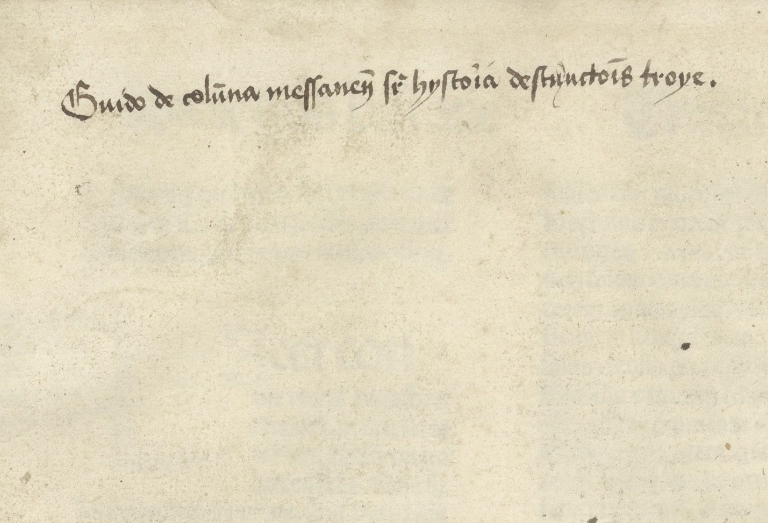 Guido de colūna messaneñ sr̄ hystoīa destructoīs troye.